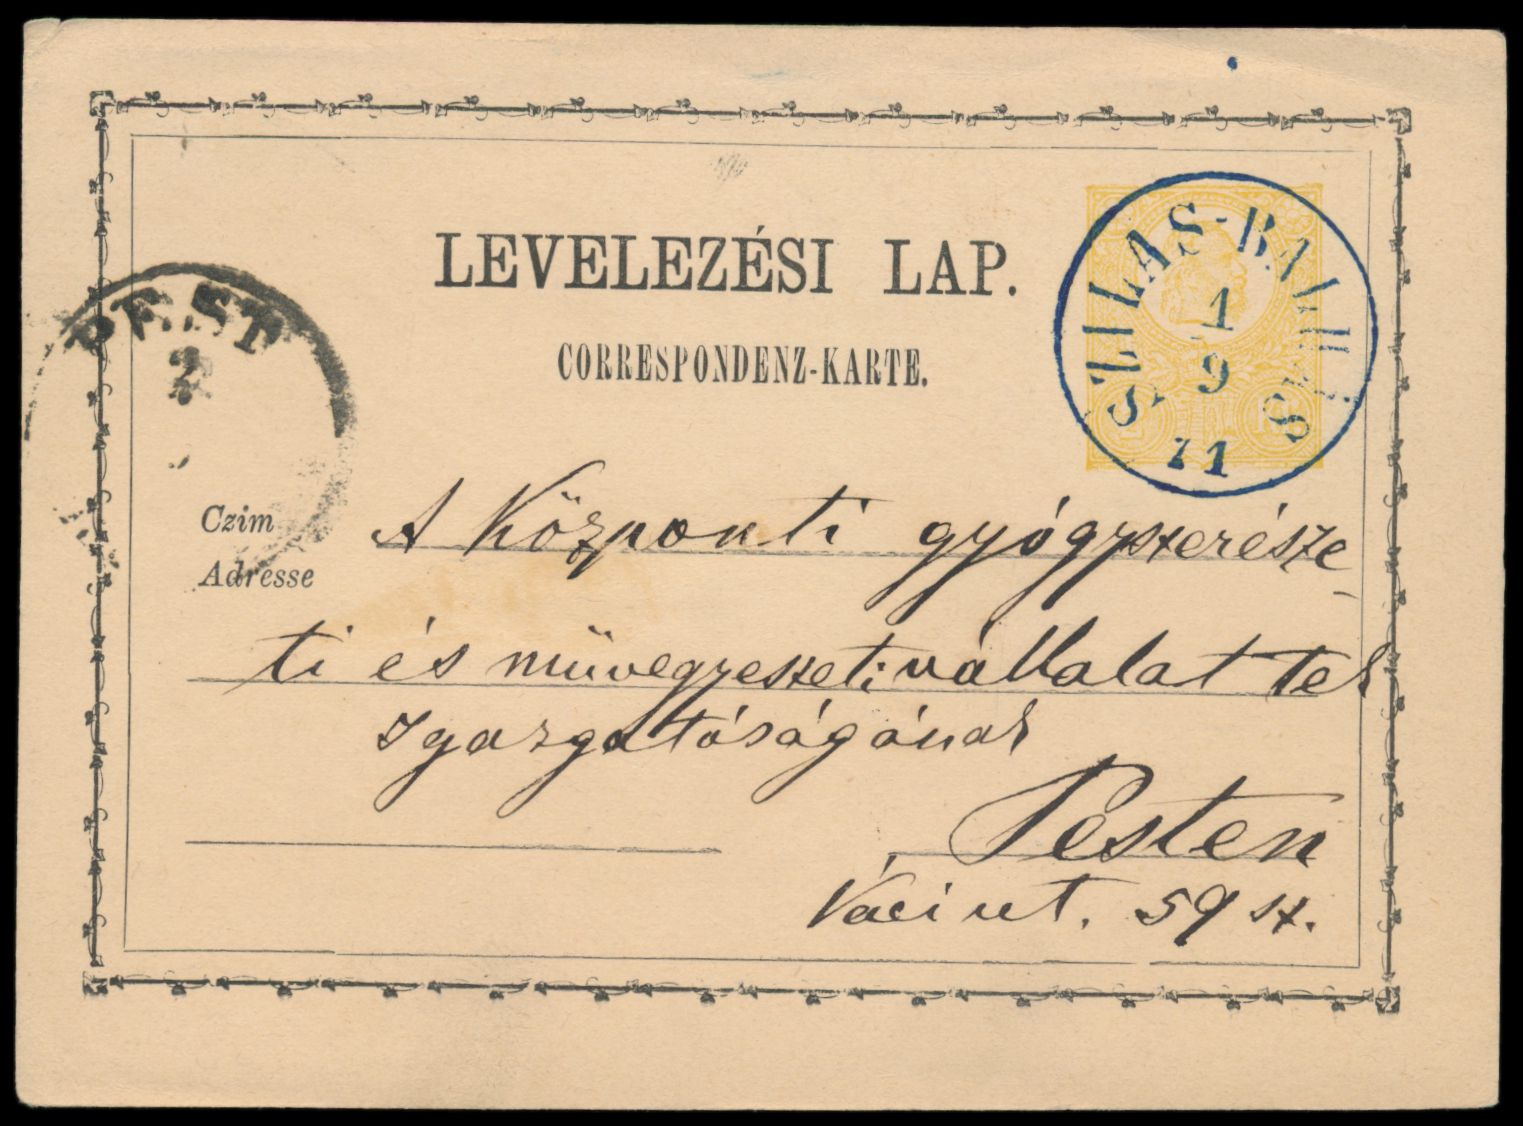 LEVELEZÉSI LAP.
CORRESPONDENZ-KARTE.
SZILAS-BALHÁS
1
9
71
PEST
2
Czim
Adresse
A Központi gyógyszerésze-
ti és müvegyeszeti vállalat tek
Igazgatóságának
Pesten
Váci ut. 59 sz.